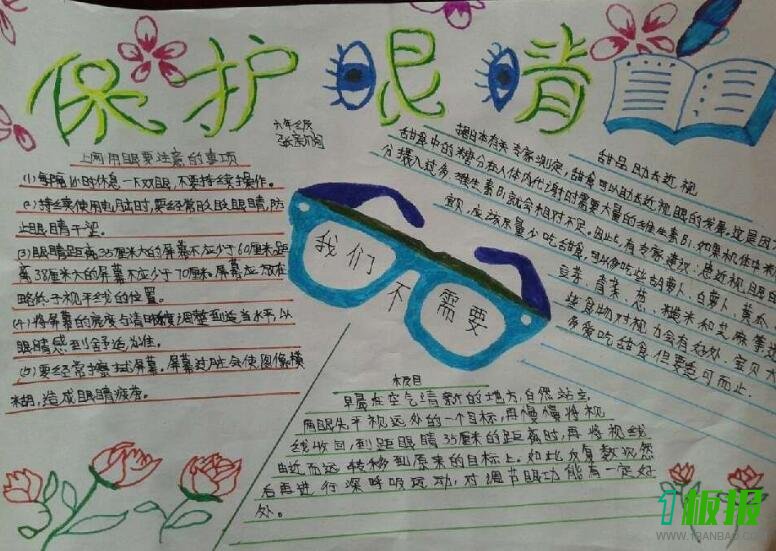 保护眼睛
六年2反
上网用眼要注意的事项
(1)每隔1小时休息一下双眼,不要持续操作。
(2)持续使用电脑时,要经常眨眨眼睛,防
止眼睛干涩。
(3)眼睛距离35厘米大的屏幕不应少于60厘米,距
离38厘米大的屏幕不应少于70厘米。屏幕应放在
略低于视平线的位置。
(4)将屏幕的亮度与清晰度调整到适当水平,以
眼睛感到舒适为准。
(5)要经常擦拭屏幕。屏幕过脏会使图像模
糊,造成眼睛疲劳。
我们
不需要
甜品助长近视
据日本有关专家测定,甜食可以助长近视眼的发展。这是因
甜食中的糖分在人体内代谢时需要大量的维生素B1,如果机体中糖
分摄入过多,维生素B1就会相对不足。因此,有专家建议:患近视眼的
应该尽量少吃甜食,可以多吃些胡萝卜、白萝卜、黄瓜
豆芽、青菜、葱、糙米和芝麻等
些食物对视力会有好处。宝贝
多爱吃甜食但要适可而止.
极目
早晨在空气清新的地方,自然站立,
两眼先平视远处的一个目标,再慢慢将视
线收回,到距眼睛35厘米的距离时,再将视线
由近而远转移到原来的目标上。如此反复数次,然
后再进行深呼吸运动,对调节眼功能有一定好
处。
1板报
WWW.1BANBAO.COM